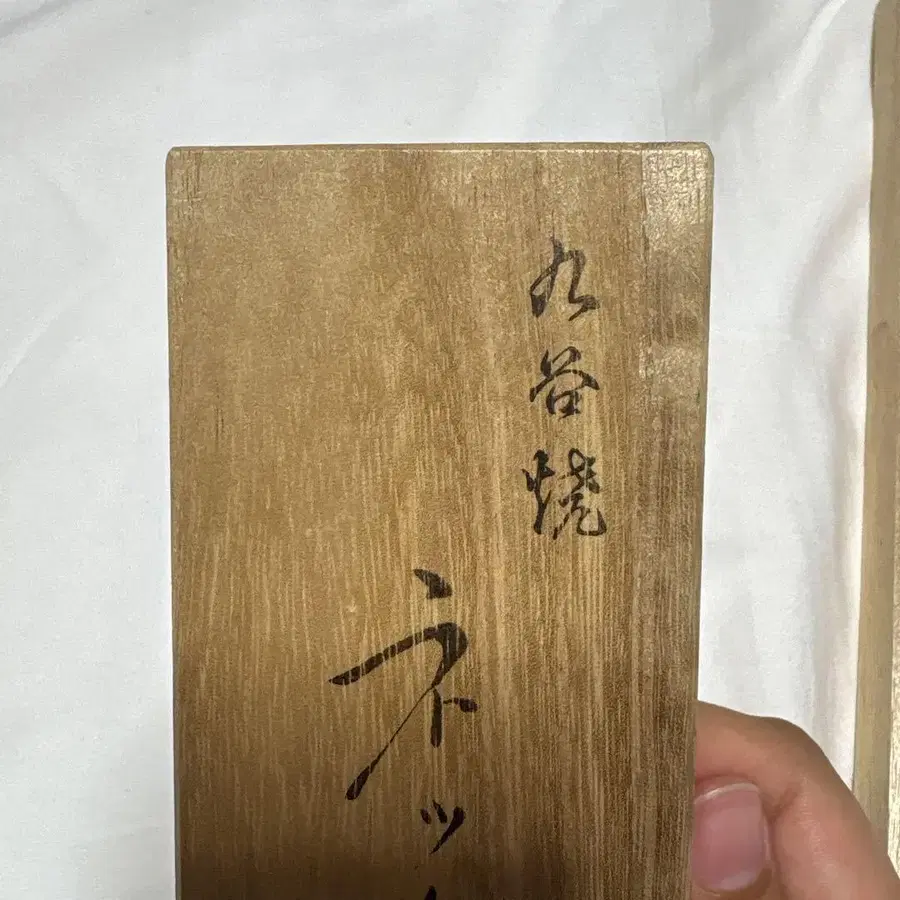 九谷焼
ネッ